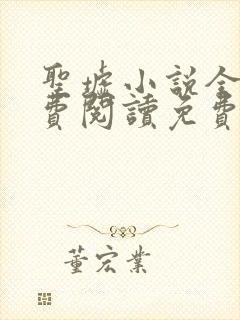 聖墟小說全
費閱讀免費
董宏業